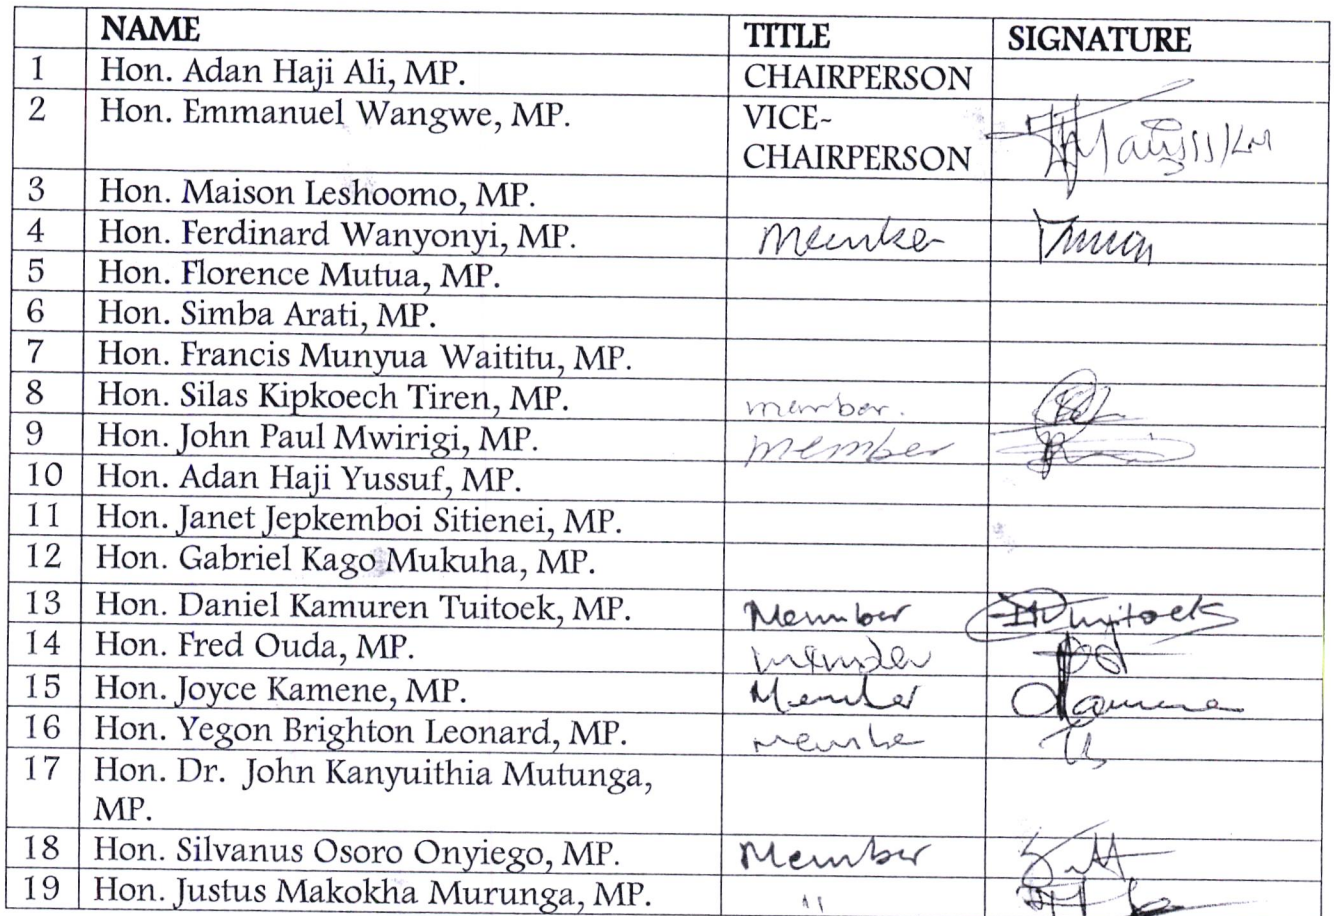 NAME TITLE SIGNATURE
1 Hon. Adan Haji Ali, MP. CHAIRPERSON
2 Hon. Emmanuel Wangwe, MP. VICE-
CHAIRPERSON
3 Hon. Maison Leshoomo, MP.
4 Hon. Ferdinard Wanyonyi, MP. Member
5 Hon. Florence Mutua, MP.
6 Hon. Simba Arati, MP.
7 Hon. Francis Munyua Waititu, MP.
8 Hon. Silas Kipkoech Tiren, MP. member.
9 Hon. John Paul Mwirigi, MP. member
10 Hon. Adan Haji Yussuf, MP.
11 Hon. Janet Jepkemboi Sitienei, MP.
12 Hon. Gabriel Kago Mukuha, MP.
13 Hon. Daniel Kamuren Tuitoek, MP. Member Tuitoek
14 Hon. Fred Ouda, MP. member
15 Hon. Joyce Kamene, MP. Member
16 Hon. Yegon Brighton Leonard, MP. membe
17 Hon. Dr. John Kanyuithia Mutunga,
MP.
18 Hon. Silvanus Osoro Onyiego, MP. Member
19 Hon. Justus Makokha Murunga, MP. "